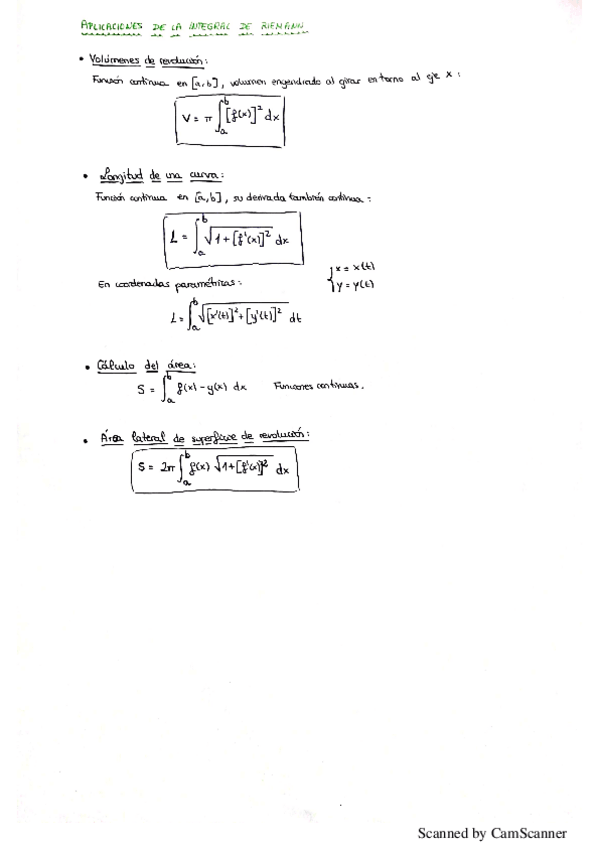 APLICACIONES DE LA INTEGRAL DE RIEMANN
• Volúmenes de revolución:
Función continua en [a,b], volumen engendrado al girar en torno al eje x:
V = π ∫_a^b [f(x)]² dx
• Longitud de una curva:
Función continua en [a,b], su derivada también continua:
L = ∫_a^b √(1+[f'(x)]²) dx
En coordenadas paramétricas: { x = x(t) y = y(t)
L = ∫_a^b √([x'(t)]²+[y'(t)]²) dt
• Cálculo del área:
S = ∫_a^b f(x) - y(x) dx Funciones continuas.
• Área lateral de superficie de revolución:
S = 2π ∫_a^b f(x) √(1+[f'(x)]²) dx
Scanned by CamScanner